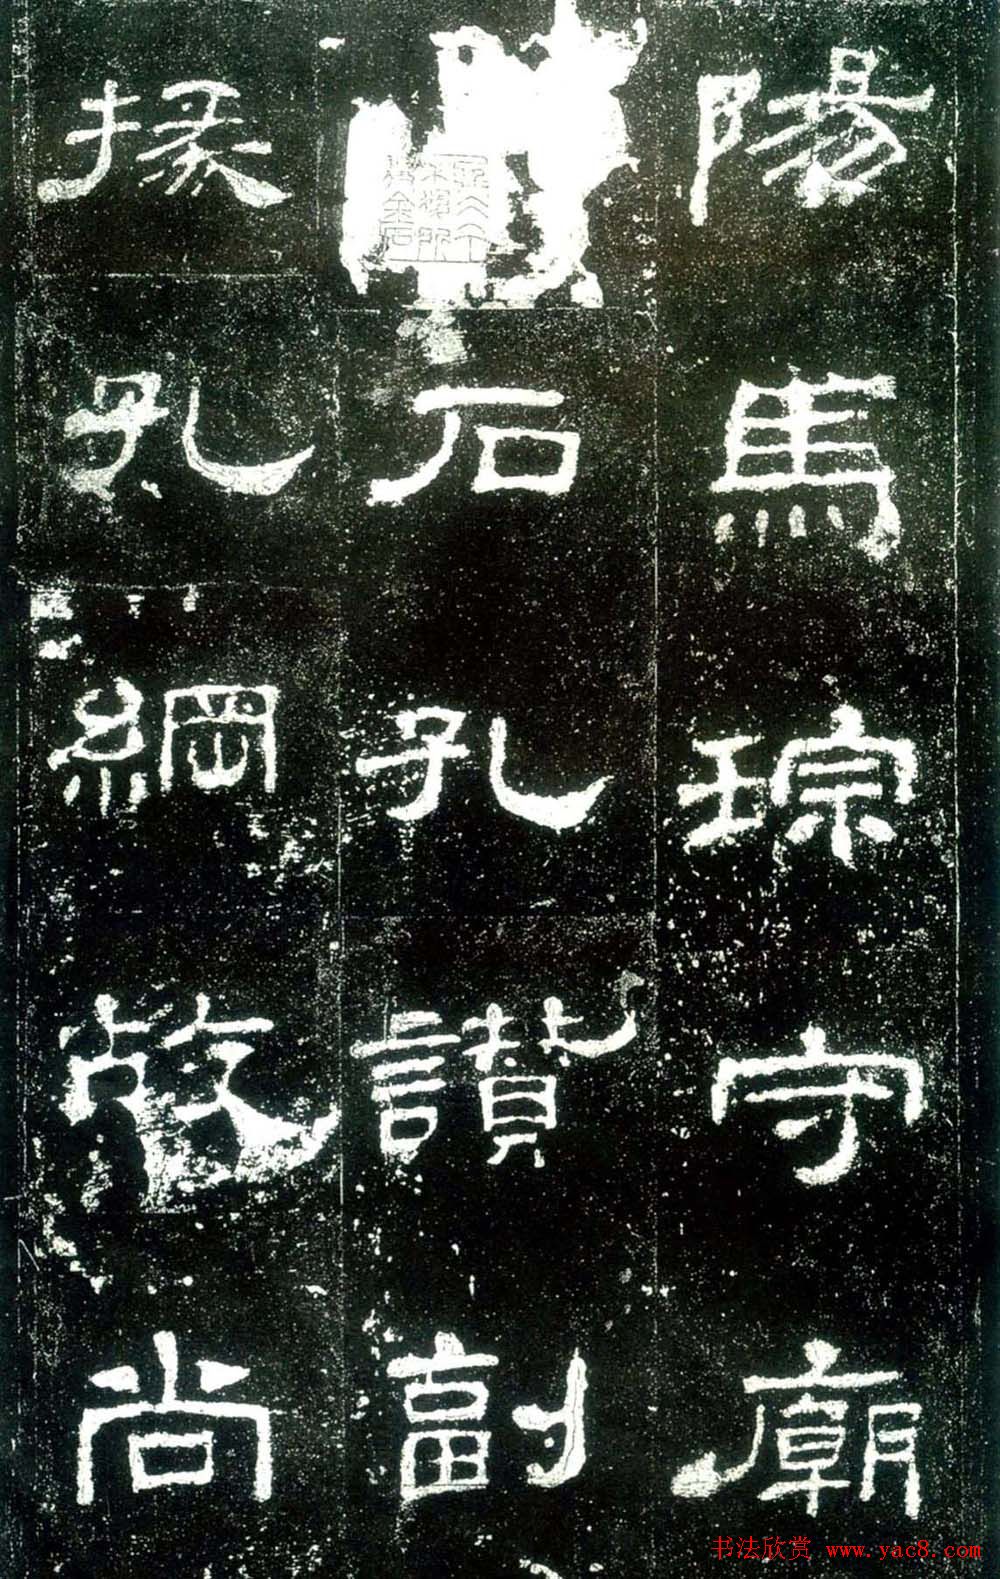 陽馬琮守廟
石孔讃副
掾孔綱故尚
书法欣赏 www.yac8.com